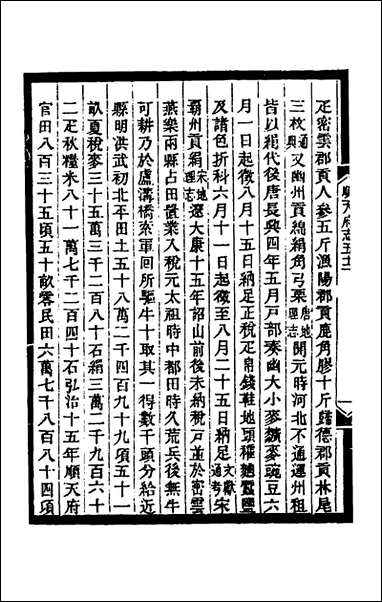 疋密雲郡貢人參五斤漁陽郡貢鹿角膠十斤歸德郡貢林尾
三枚通典又幽州貢綿絹角弓栗唐地理志開元時河北不通運州租
皆以絹代後唐長興四年五月戶部奏幽大小麥𪍿麥豌豆六
月一日起徵八月十五日納足正稅疋帛錢鞋地頭榷麯蠶鹽
及諸色折科六月十一日起徵至八月二十五日納足文獻通考宋
霸州貢絹宋地理志遼大康十五年詔山前後未納稅戶並於密雲
燕樂兩縣占田置業入稅元太祖時中都田時久荒兵後無牛
可耕乃於盧溝橋索軍回所驅牛十取其一得數千頭分給近
縣明洪武初北平田土五十八萬二千四百九十九項五十一
畝夏稅麥三十五萬三千二百八十石絹三萬二千九百六十
二疋秋糧米八十一萬七千二百四十石弘治十五年順天府
官田八百三十五頃五十畝零民田六萬七千八百八十四項
順天府志五十二